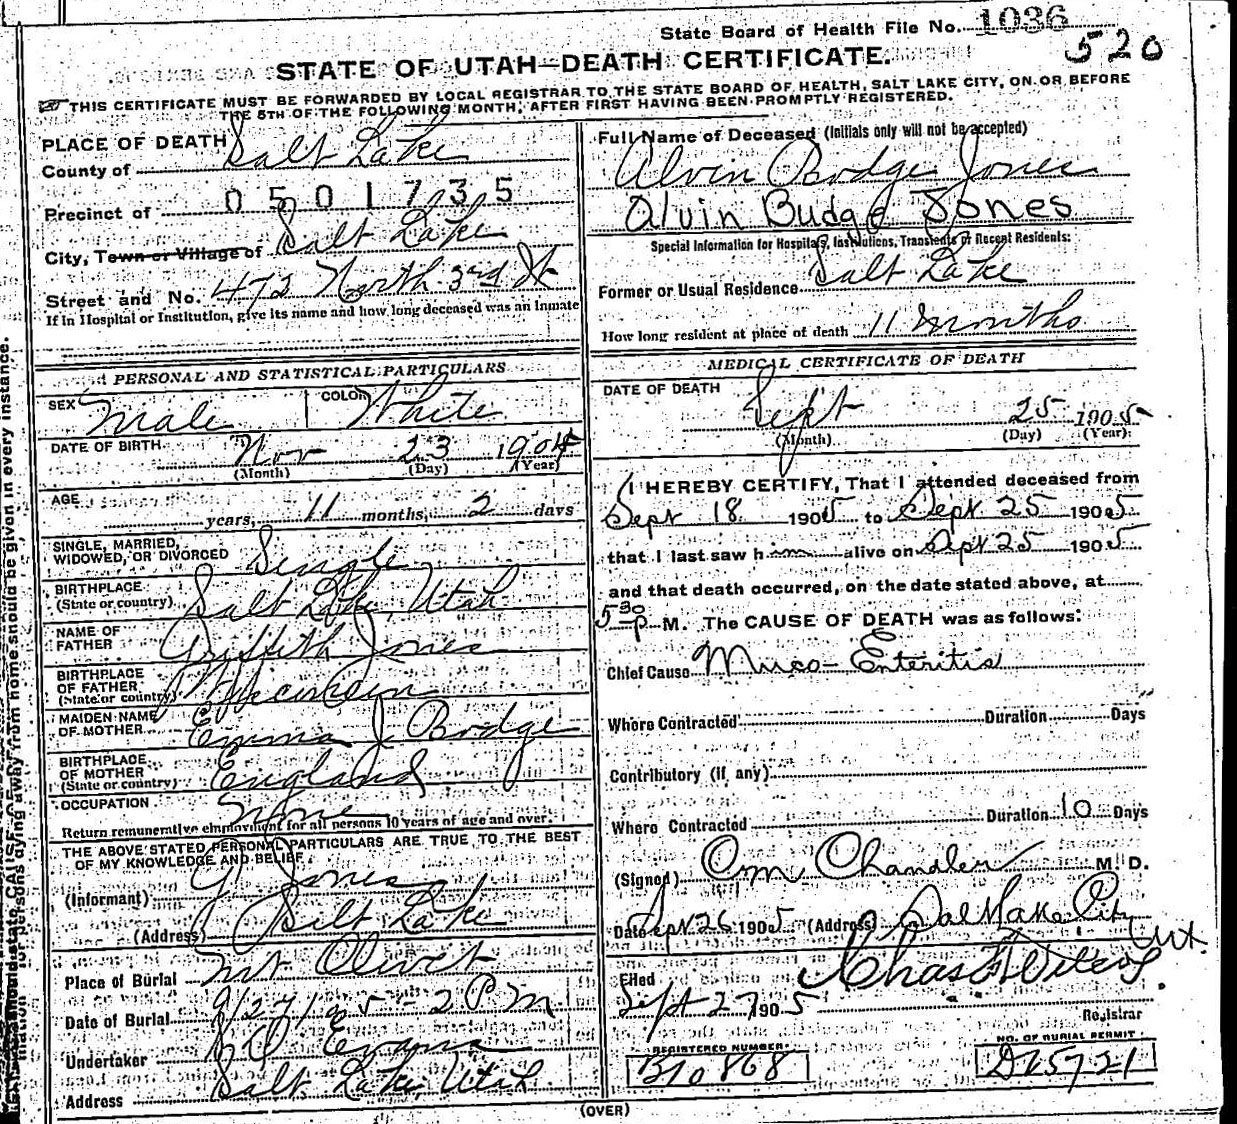 State Board of Health File No. 1036
520
STATE OF UTAH—DEATH CERTIFICATE.
THIS CERTIFICATE MUST BE FORWARDED BY LOCAL REGISTRAR TO THE STATE BOARD OF HEALTH, SALT LAKE CITY, ON OR BEFORE
THE 5TH OF THE FOLLOWING MONTH, AFTER FIRST HAVING BEEN PROMPTLY REGISTERED.
PLACE OF DEATH
County of Salt Lake
Precinct of 0501735
City, Town or Village of Salt Lake
Street and No. 472 North 3rd St
If in Hospital or Institution, give its name and how long deceased was an inmate
PERSONAL AND STATISTICAL PARTICULARS
SEX Male COLOR White
DATE OF BIRTH Nov 23 1904
(Month) (Day) (Year)
AGE years, 11 months, 2 days
SINGLE, MARRIED,
WIDOWED, OR DIVORCED Single
BIRTHPLACE
(State or country) Salt Lake, Utah
NAME OF
FATHER Griffith Jones
BIRTHPLACE
OF FATHER
(State or country)
MAIDEN NAME
OF MOTHER Emma J Bodge
BIRTHPLACE
OF MOTHER
(State or country) England
OCCUPATION None
Return remunerative employment for all persons 10 years of age and over.
THE ABOVE STATED PERSONAL PARTICULARS ARE TRUE TO THE BEST
OF MY KNOWLEDGE AND BELIEF.
(Informant) G Jones
(Address) Salt Lake
Place of Burial Mt Olivet
Date of Burial 9/27/05 - 2 P M
Undertaker Evans
Address Salt Lake, Utah
Full Name of Deceased (Initials only will not be accepted)
Alvin Bodge Jones
Alvin Budge Jones
Special Information for Hospitals, Institutions, Transients or Recent Residents:
Former or Usual Residence Salt Lake
How long resident at place of death 11 months
MEDICAL CERTIFICATE OF DEATH
DATE OF DEATH Sept 25 1905
(Month) (Day) (Year)
I HEREBY CERTIFY, That I attended deceased from
Sept 18 1905 to Sept 25 1905
that I last saw him alive on Sept 25 1905
and that death occurred, on the date stated above, at
5 30 p M. The CAUSE OF DEATH was as follows:
Chief Cause Muco-Enteritis
Where Contracted Duration Days
Contributory (if any)
Where Contracted Duration 10 Days
(Signed) Chandler M D.
Date Sept 26 1905 (Address) Salt Lake City
Ut
Filed
Sept 27 1905 Chas
Registrar
REGISTERED NUMBER. NO. OF BURIAL PERMIT
B10868 D65721
(OVER)